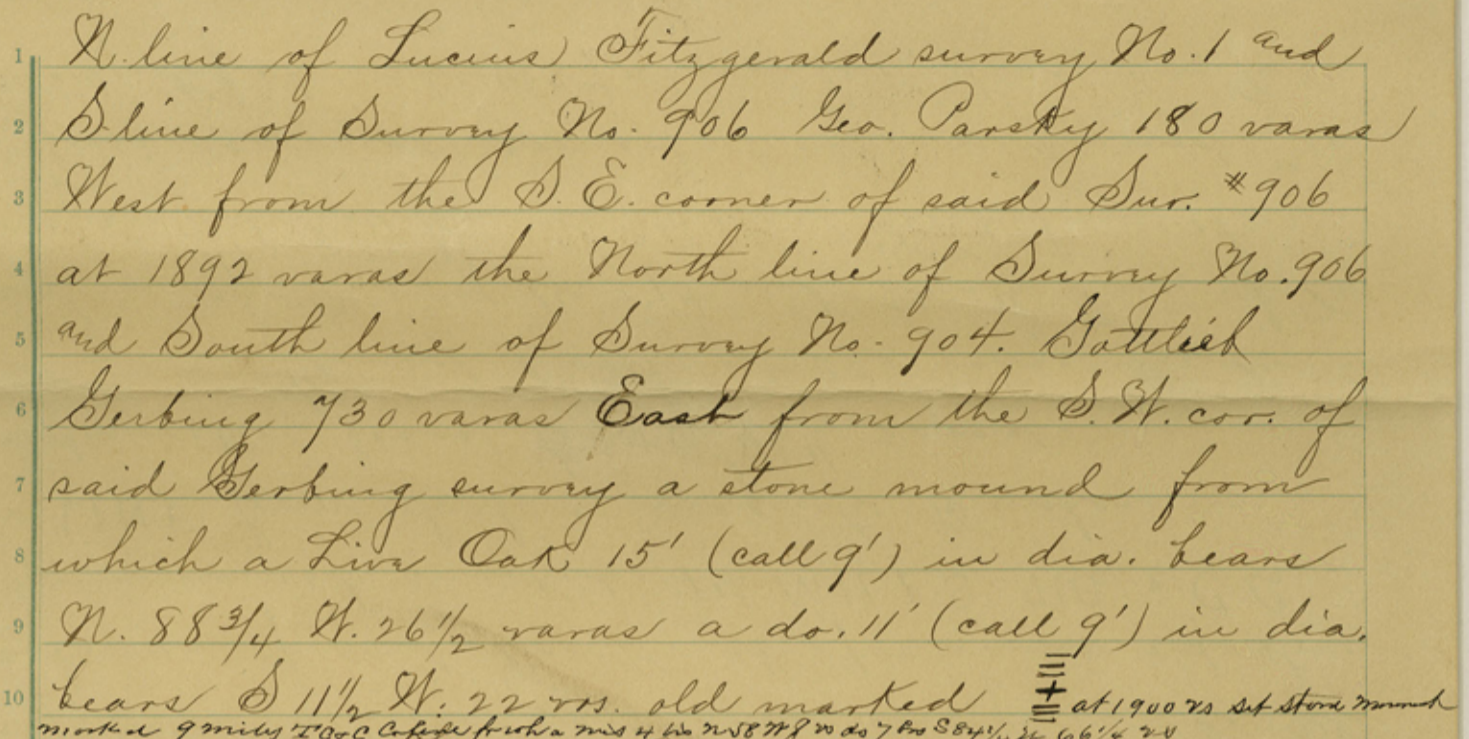 1 N. line of Lucius Fitzgerald survey No. 1 and
2 S. line of Survey No. 906 Geo. Parsky 180 varas
3 West from the S. E. corner of said Sur. #906
4 at 1892 varas the North line of Survey No. 906
5 and South line of Survey No. 904. Gottlieb
6 Gerbing 730 varas East from the S. W. cor. of
7 said Gerbing survey a stone mound from
8 which a Live Oak 15' (call 9') in dia. bears
9 N. 88 3/4 W. 26 1/2 varas a do. 11' (call 9') in dia.
10 bears S 11 1/2 W. 22 vrs. old marked at 1900 vs set stone mound
marked 9 miles